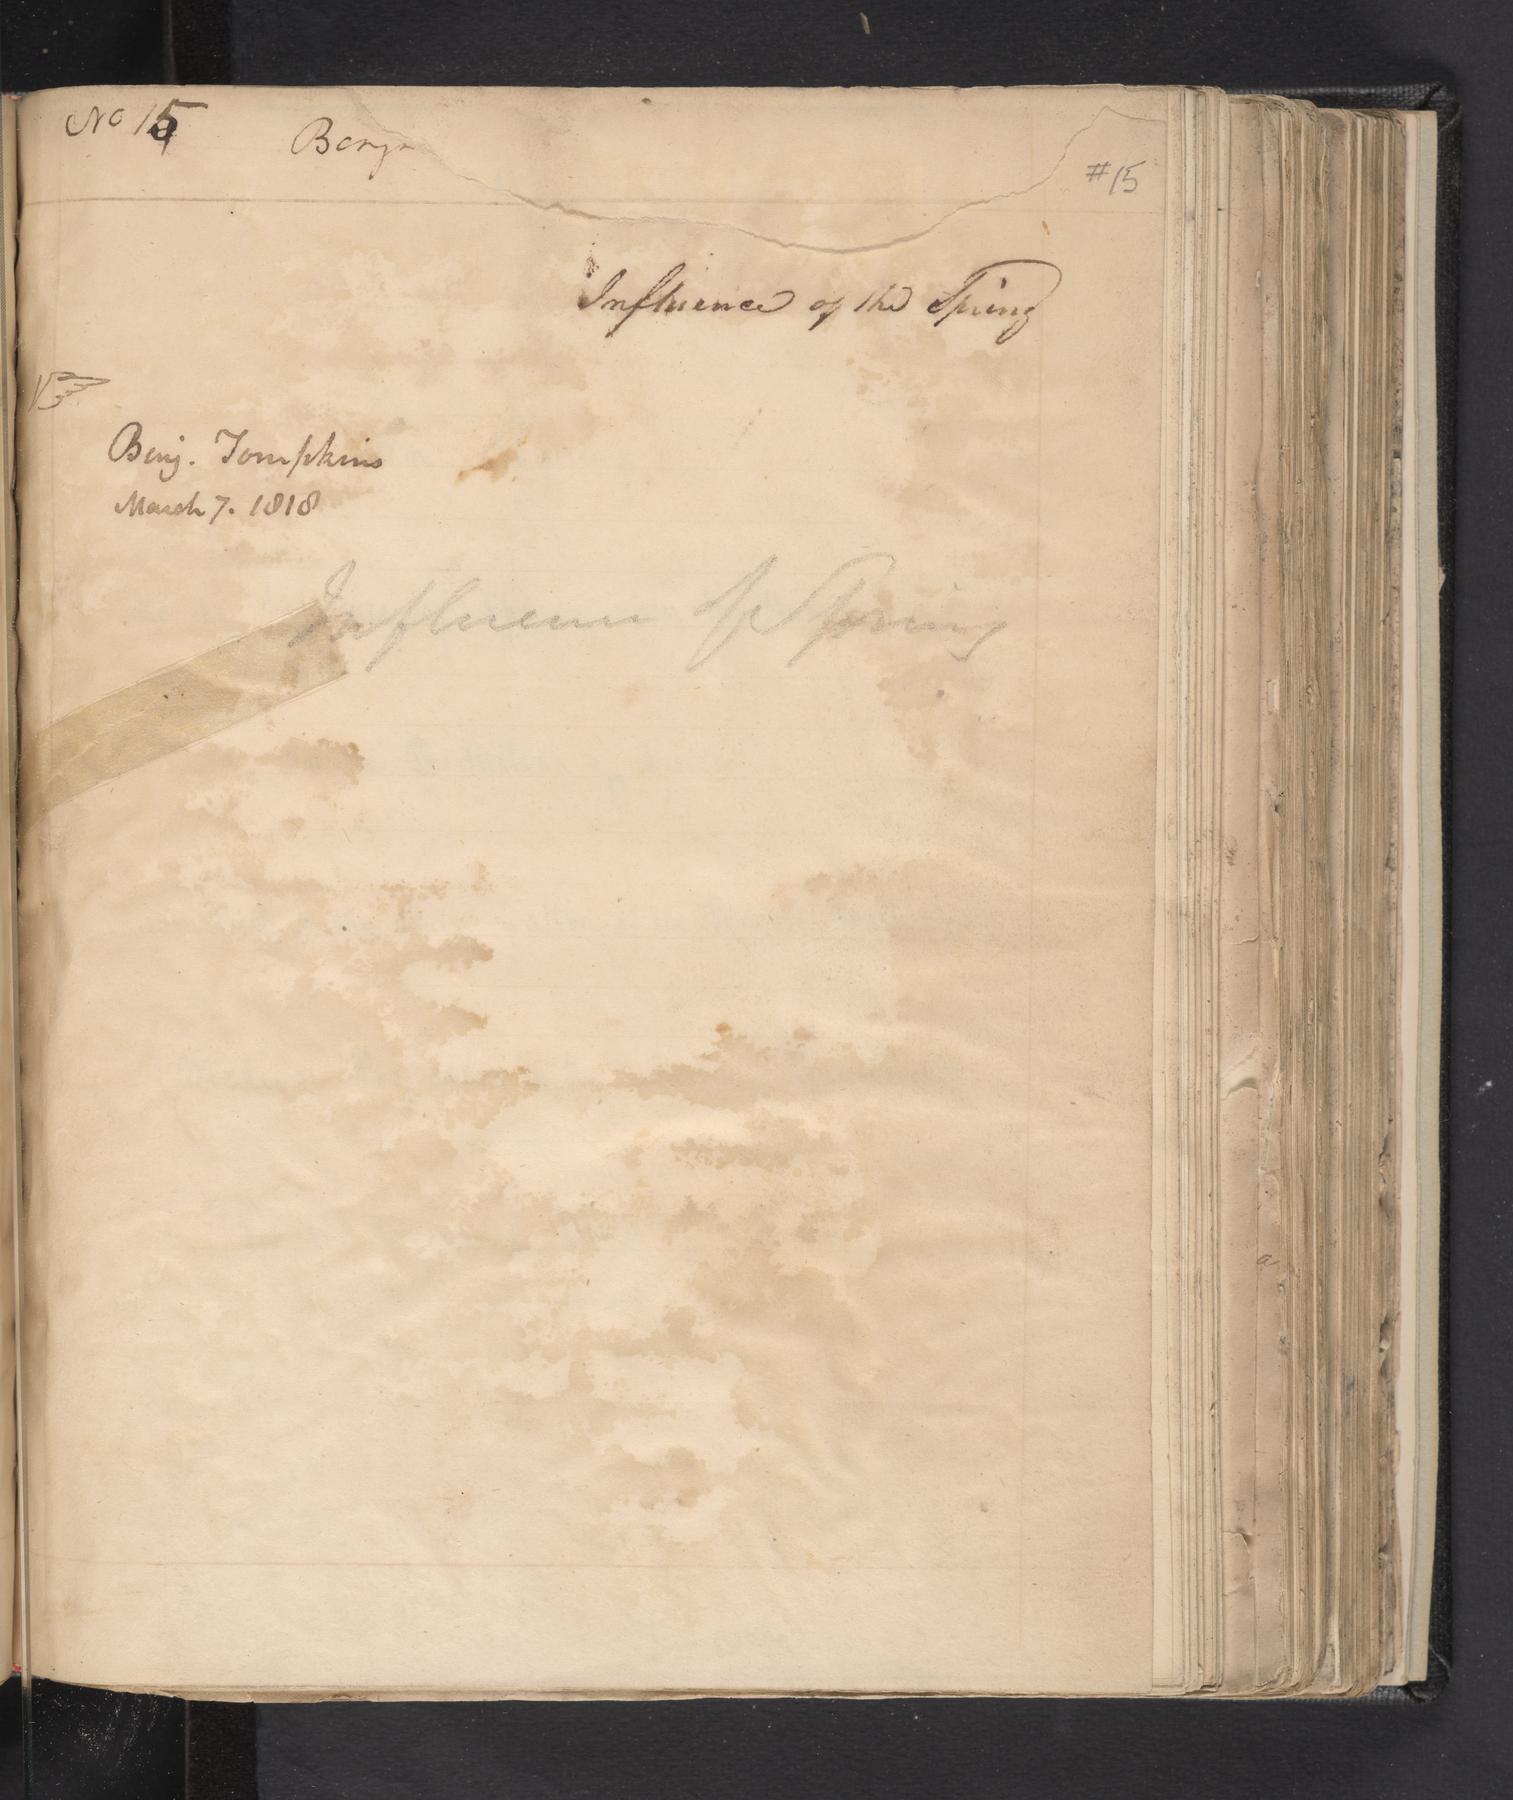 No 15
Benj
#15
Influence of the Spring
Benj. Tompkins
March 7. 1818
Influence of Spring
a